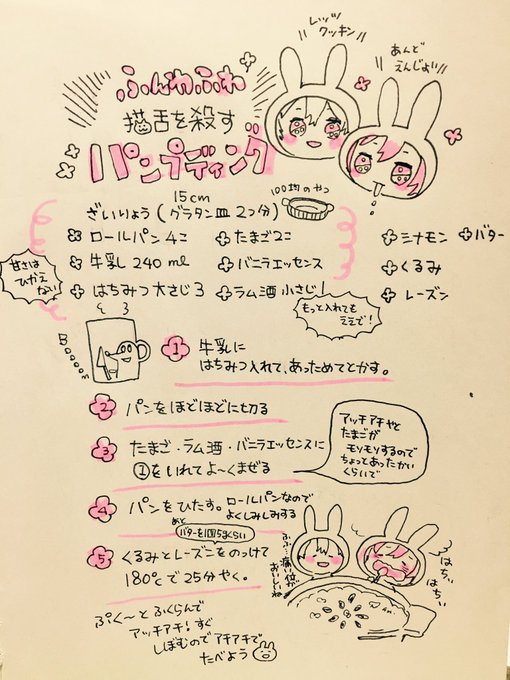 レッツ
クッキン
あんど
えんじょい
ふんわふわ
猫舌を殺す
パンプディング
15cm
ざいりょう(グラタン皿 2つ分)
100均のやつ
ロールパン4こ
たまご2こ
シナモン
バター
牛乳 240ml
バニラエッセンス
くるみ
はちみつ大さじ3
ラム酒 小さじ1
レーズン
甘さは
ひかえ
ない
もっと入れても
ええで!
Booooom
1 牛乳に
はちみつ入れて、あっためてとかす。
2 パンをほどほどに切る
3 たまご・ラム酒・バニラエッセンスに
①をいれてよ〜くまぜる
アッチアチやと
たまごが
モソモソするので
ちょっとあったかい
くらいで
4 パンをひたす。ロールパンなので
よくしみしみする
あと
5 くるみとレーズンをのっけて
180℃で25分やく。
ぷく〜とふくらんで
アッチアチ!すぐ
しぼむのでアチアチで
たべよう
ふふ…熱い位が
おいしいね
はちぃ
はちぃ